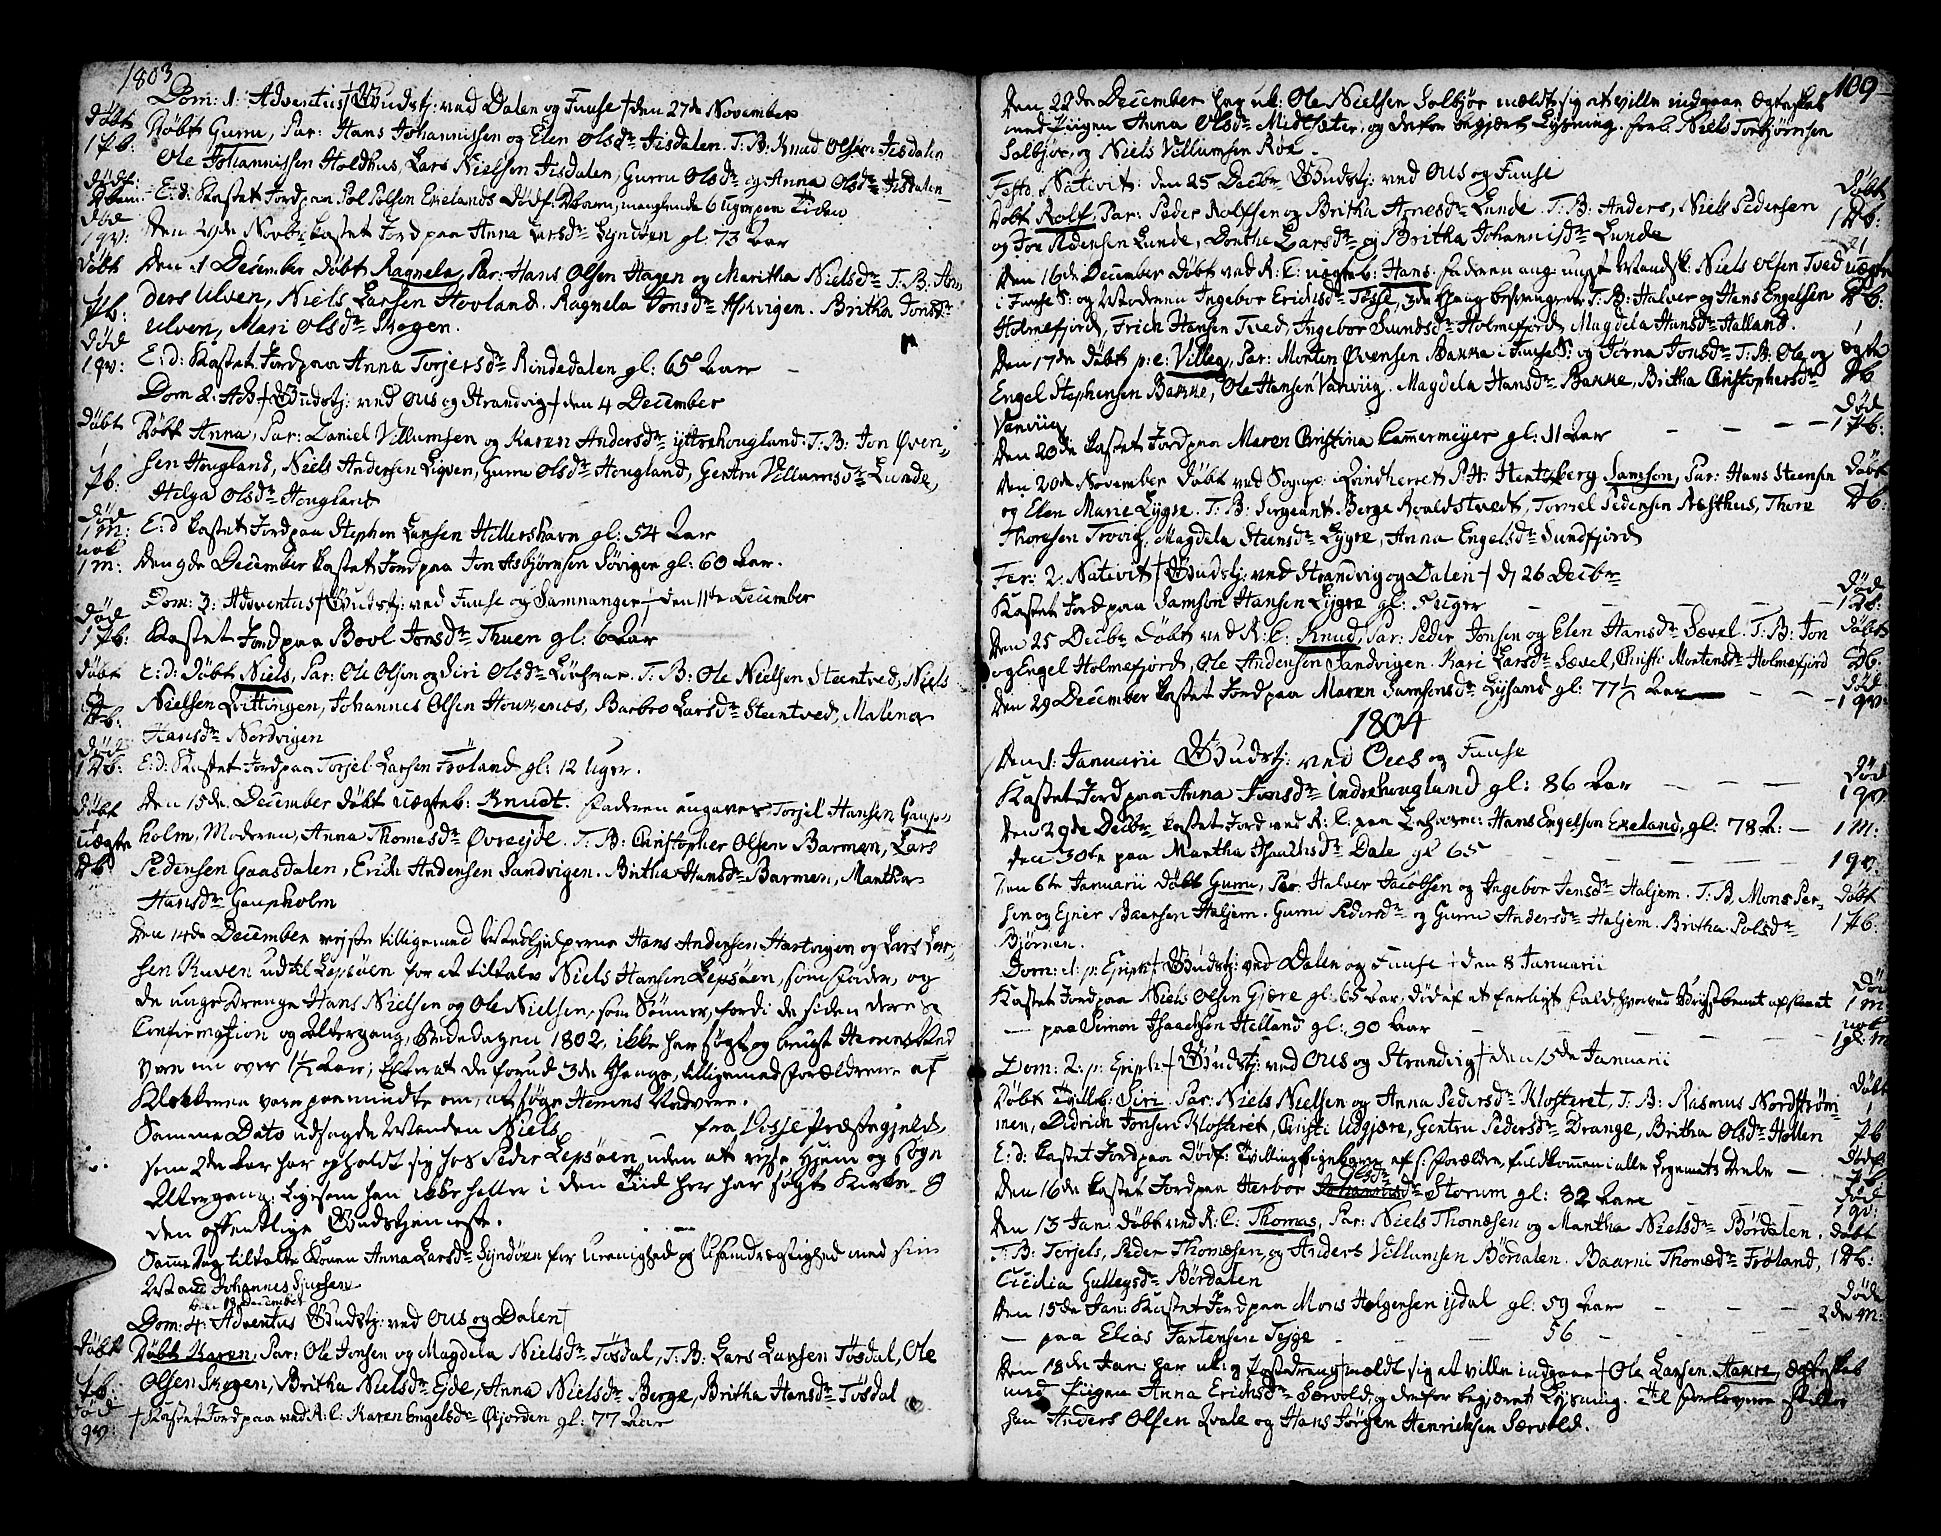 1803
Dom: 1. Adventus, Gudstj: ved Dalen og Fuuse, den 27de November
Døbt Døbt Guru, Par: Hans Johannissen og Elen Olsdr Jisdalen. T. B: Knud Olsen Jisdalen
1 Pb: Ole Johannissen Holdhus, Lars Nielsen Jisdalen, Guru Olsdr og Anna Olsdr Jisdalen
E: d: Kastet Jord paa Pol Polsens Ekelands Dødf: Barn, manglende 6 Uger paa Tiden
død 1 qv: Den 29de Novbr kastet Jord paa Anna Larsdr Lyndøen gl: 73 Aar
Døbt Den 1 December Døbt Ragnela, Par: Hans Olsen Hagen og Maritha Nielsdr T. B: An-
Pb: ders Ulven, Niels Larsen Hovland. Ragnela Jonsdr Askvigen. Britha Jonsdr
Død Ulven, Mari Olsdr Skogen.
1 qv: E: d: Kastet Jord paa Anna Torjersdr Rindedalen gl: 65 Aar
Dom 2: Adv: Gudstj: ved Ous og Strandvig, den 4 December
Døbt Døbt Anna, Par: Daniel Villumsen og Karen Andersdr yttrehougland. T. B: Jon Øven-
Pb: sen Hougland, Niels Andersen Ligven, Guru Olsdr Hougland, Gertru Villumsdr Lunde,
Helga Olsdr Hougland
død 1 M: E: d kastet Jord paa Stephen Larsen Hillershavn gl: 54 Aar
1 m: Den 9de December kastet Jord paa Jon Asbjørnsen Søvigen gl: 60 Aar.
Dom: 3: Adventus, Gudstj: ved Fuuse og Samnanger, den 11te December
Død 1 Pb: Kastet Jord paa Bool Jonsdr Thuen gl: 6 Aar
Døbt E: d: Døbt Niels, Par: Ole Olsen og Siri Olsdr T. B: Ole Nielsen Steentved, Niels
Db: Nielsen Qvittingen, Johannes Olsen Houkenæs, Barbro Larsdr Steentved, Malena
Hansdr Nordvigen
Død 1 Db: E: d: Kastet Jord paa Torjel Larsen Frøland gl: 12 Uger.
Døbt Den 15de December Døbt uægteb: Knudt. Faderen angaves Torjel Hansen Gaup-
uægte holm, Moderen, Anna Thomesdr Øvreejde. T. B: Christopher Olsen Barmen, Lars
Db Pedersen Gaasdalen, Erich Andersen Sandvigen. Britha Hansdr Barmen, Martha
Hansdr Gaupholm
Den 14de December rejste tilligemed Medhjelperne Hans Andersen Hartvigen og Lars Lar-
sen Ruven ud til Lepsøen for at tiltale Niels Hansen Lepsøen, som Fader, og
de unge Drenge Hans Nielsen og Ole Nielsen, som Sønner, fordi de siden deres
Confirmation og Altergang, 1802, ikke har søgt og brugt Herrens Nad
vere nu over 1½ Aar; Efterat de forud 3de Gange, tilligemed Forældrene af
Klokkerne vare paamindte om, at søge Herrens Nadvere.
Samme Dato udsagde Manden Niels fra Vosse Præstegjeld,
som 2de Aar har opholdt sig hos Peder Lepsøen, uden at rejse Hjem og søge
Altergang: Ligesom han ikke heller i den Tiid her har søgt Kirke og
den offentlige Gudstjeneste.
Samme Dag tiltalte Konen Anna Larsdr Lyndøen for Urenighed og Usamdrægtighed med sin
Mand Johannes Siursen
den 18 December
Dom: 4: Adventus Gudstj: ved Ous og Dalen
Døbt Døbt Karen, Par: Ole Jonsen og Magdela Nielsdr Tøsdal, T. B: Lars Larsen Tøsdal, Ole
Pb: Olsen Skogen, Britha Nielsdr Ejde, Anna Nielsdr Berge, Britha Hansdr Tøsdal
død qv Kastet Jord paa ved A: C: Karen Engelsdr Øjorden gl: 77 Aar
109
Den 22de December har uk: Ole Nielsen Solbjør meldt sig at ville indgaae Ægteskab
med Pigen Anna Olsdr Midtsæter, og derfor begjært Lysning. forl: Niels Torbjørnsen
Solbjør, og Niels Villumsen Roe.
Festo Nativit: den 25 Decbr Gudstj: ved Ous og Fuuse
Døbt Rolf, Par: Peder Rolfsen og Britha Arnesdr Lunde. T. B: Anders, Niels Pedersen Døbt
og Jon Pedersen Lunde, Dorthe Larsdr og Britha Johannisdr Lunde 1 Db:
Den 16de December Døbt ved A: C: uægteb: Hans. Faderen ang ungt Mandsk: Niels Olsen Tved uægte
i Fuuse S: og Moderen Ingebor Erichsdr Tøsse, 3de Gang besvangret. T. B: Halver og Hans Engelsen Db:
Holmefjord, Erich Hansen Tved, Ingebor Siursdr Holmefjord, Magdela Hansdr Halland.
Den 17de Døbt p: e: Villeg, Par: Morten Øvensen Bakke i Fuuse S: og Jørna Jonsdr T. B: Ole og ægte
Engel Stephensen Bakke, Ole Hansen Vinviig. Magdela Hansdr Bakke, Britha Christophersdr Db
Vinviig Død
Den 20de kastet Jord paa Maren Christina Cammermeyer gl: 11 Aar 1 Pb:
Den 20de November Døbt ved Sogupr: Qvindherret S. H: Hertzberg Samson, Par: Hans Steensen Døbt
og Elen Marie Lygre. T. B: Sergeant Berge Roaldstvedt, Torrel Pedersen Præsthus, Thore Db:
Thoresen Trovig, Magdela Steensdr Lygre, Anna Engelsdr Sundfjord
Fer: 2. Nativit, Gudstj: ved Strandvig og Dalen, d 26 Decbr
Kastet Jord paa Samson Hansen Lygre gl: 5 uger Død 1 Db:
Den 25 Decbr Døbt ved A: C: Knud, Par: Peder Jonsen og Elen Hansdr Sævel. T. B: Jon Døbt
og Engel Holmefjord, Ole Andersen Sandvigen. Kari Larsdr Sævel, Christi Mortensdr Holmefjord Db:
Den 29 December kastet Jord paa Maren Samsonsdr Lysand gl: 77½ Aar død 1 qv:
1804
Den 1. Januarii Gudstj: ved Ous og Fuuse
Kastet Jord paa Anna Jonsdr indrehougland gl: 86 Aar Død 1 qv
Den 29de Decbr kastet Jord ved A: C: paa Hans Engelsen Ekeland, gl: 78 A: 1 M:
den 30te paa Martha Isaachsdr Dale gl 65 1 qv:
Den 6te Januarii Døbt Guru, Par: Halver Jacobsen og Ingebor Jensdr Haljem. T. B, Mons Per- Døbt
sen og Ejner Baarsen Haljem. Guru Pedersdr og Guru Andersdr Haljem. Britha Polsdr 1 Pb:
Bjørnen.
Dom: 1: p: Epiph, Gudstj: ved Dalen og Fuuse, den 8 Januarii
Kastet Jord paa Niels Olsen Gjære gl: 65 Aar, død af et farligt fald hvorved Brystbenet afslaaet Død 1 m
— paa Simon Isaachsen Helland gl: 90 Aar 1 gl: m
Dom: 2: p: Epiph, Gudstj: ved Ous og Strandvig, den 15de Januarii
Døbt Tvilb: Siri. Par: Niels Nielsen og Anna Pedersdr Klosteret, T. B: Rasmus Nordstrøm- Døbt
men, Didrich Jonsen Klosteret, Christi Udgjære, Gertru Pedersdr Drange, Britha Olsdr Hollen Pb
E: d: kastet Jord paa Dødf: Tvilling Pigebarn af s: Forældre, fuldkommen i alle Legemets Deele Dødf: Pb
Den 16de kastet Jord paa Herbor Olsdr Storum gl: 82 Aar død 1 qv:
Den 13 Jan: Døbt ved A: C: Thomas, Par: Niels Thomesen og Martha Nielsdr Bördalen, Døbt
T. B: Torjels, Peder Thomesen, og Anders Villumsen Bördalen. Baarni Thomædr Frøland, 1 Db:
Cicilia Gullegsdr Bördalen
Den 15de Jan: Kastet Jord paa Mons Helgensen ijdal gl: 59 Aar Døde
— paa Elias Fartensen Tejge — 56 2de M:
Den 18de Jan: har uk: og Postdreng meldt sig at ville indgaae Ole Larsen Aakre, Ægteskab
med Pigen Anna Erichsdr Særvold, og derfor begjært Lysning. Til forlovere stiller
han Anders Olsen Qvale og Hans Jørgen Henrichsen Særvold.